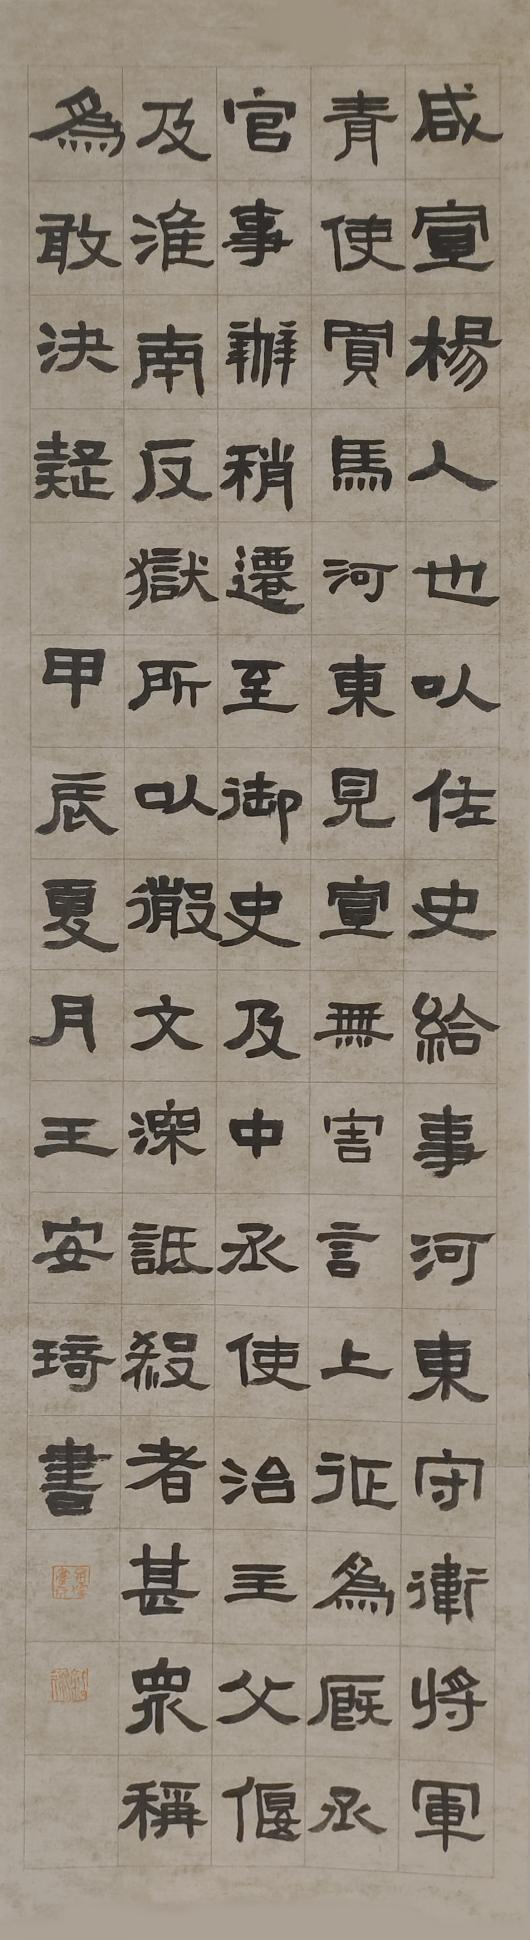 咸宣楊人也以佐史給事河東守衛將軍
青使買馬河東見宣無害言上征為厩丞
官事辦稍遷至御史及中丞使治主父偃
及淮南反獄所以微文深詆殺者甚眾稱
為敢決疑 甲辰夏月王安琦書